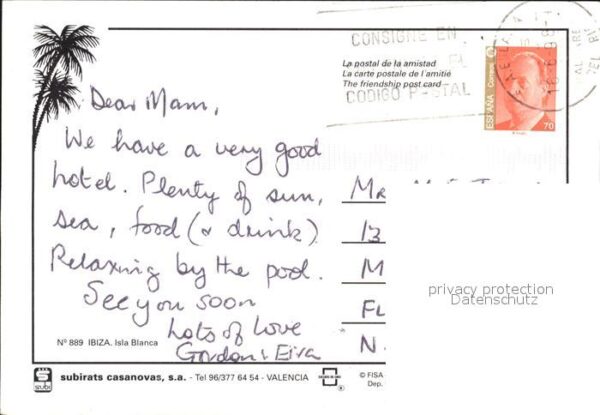 CONSIGNE EN
EL
CODIGO P STAL
La postal de la amistad
La carte postale de l'amitié
The friendship post card
ESPAÑA Correos
70
Dear Mam,
We have a very good
hotel. Plenty of sun,
sea, food (& drink)
Relaxing by the pool.
See you soon
Lots of love
Gordon & Eira
MR
13
M
FL
N.
privacy protection
Datenschutz
Nº 889 IBIZA. Isla Blanca
subi
subirats casanovas, s.a. - Tel 96/377 64 54 - VALENCIA
© FISA
Dep.